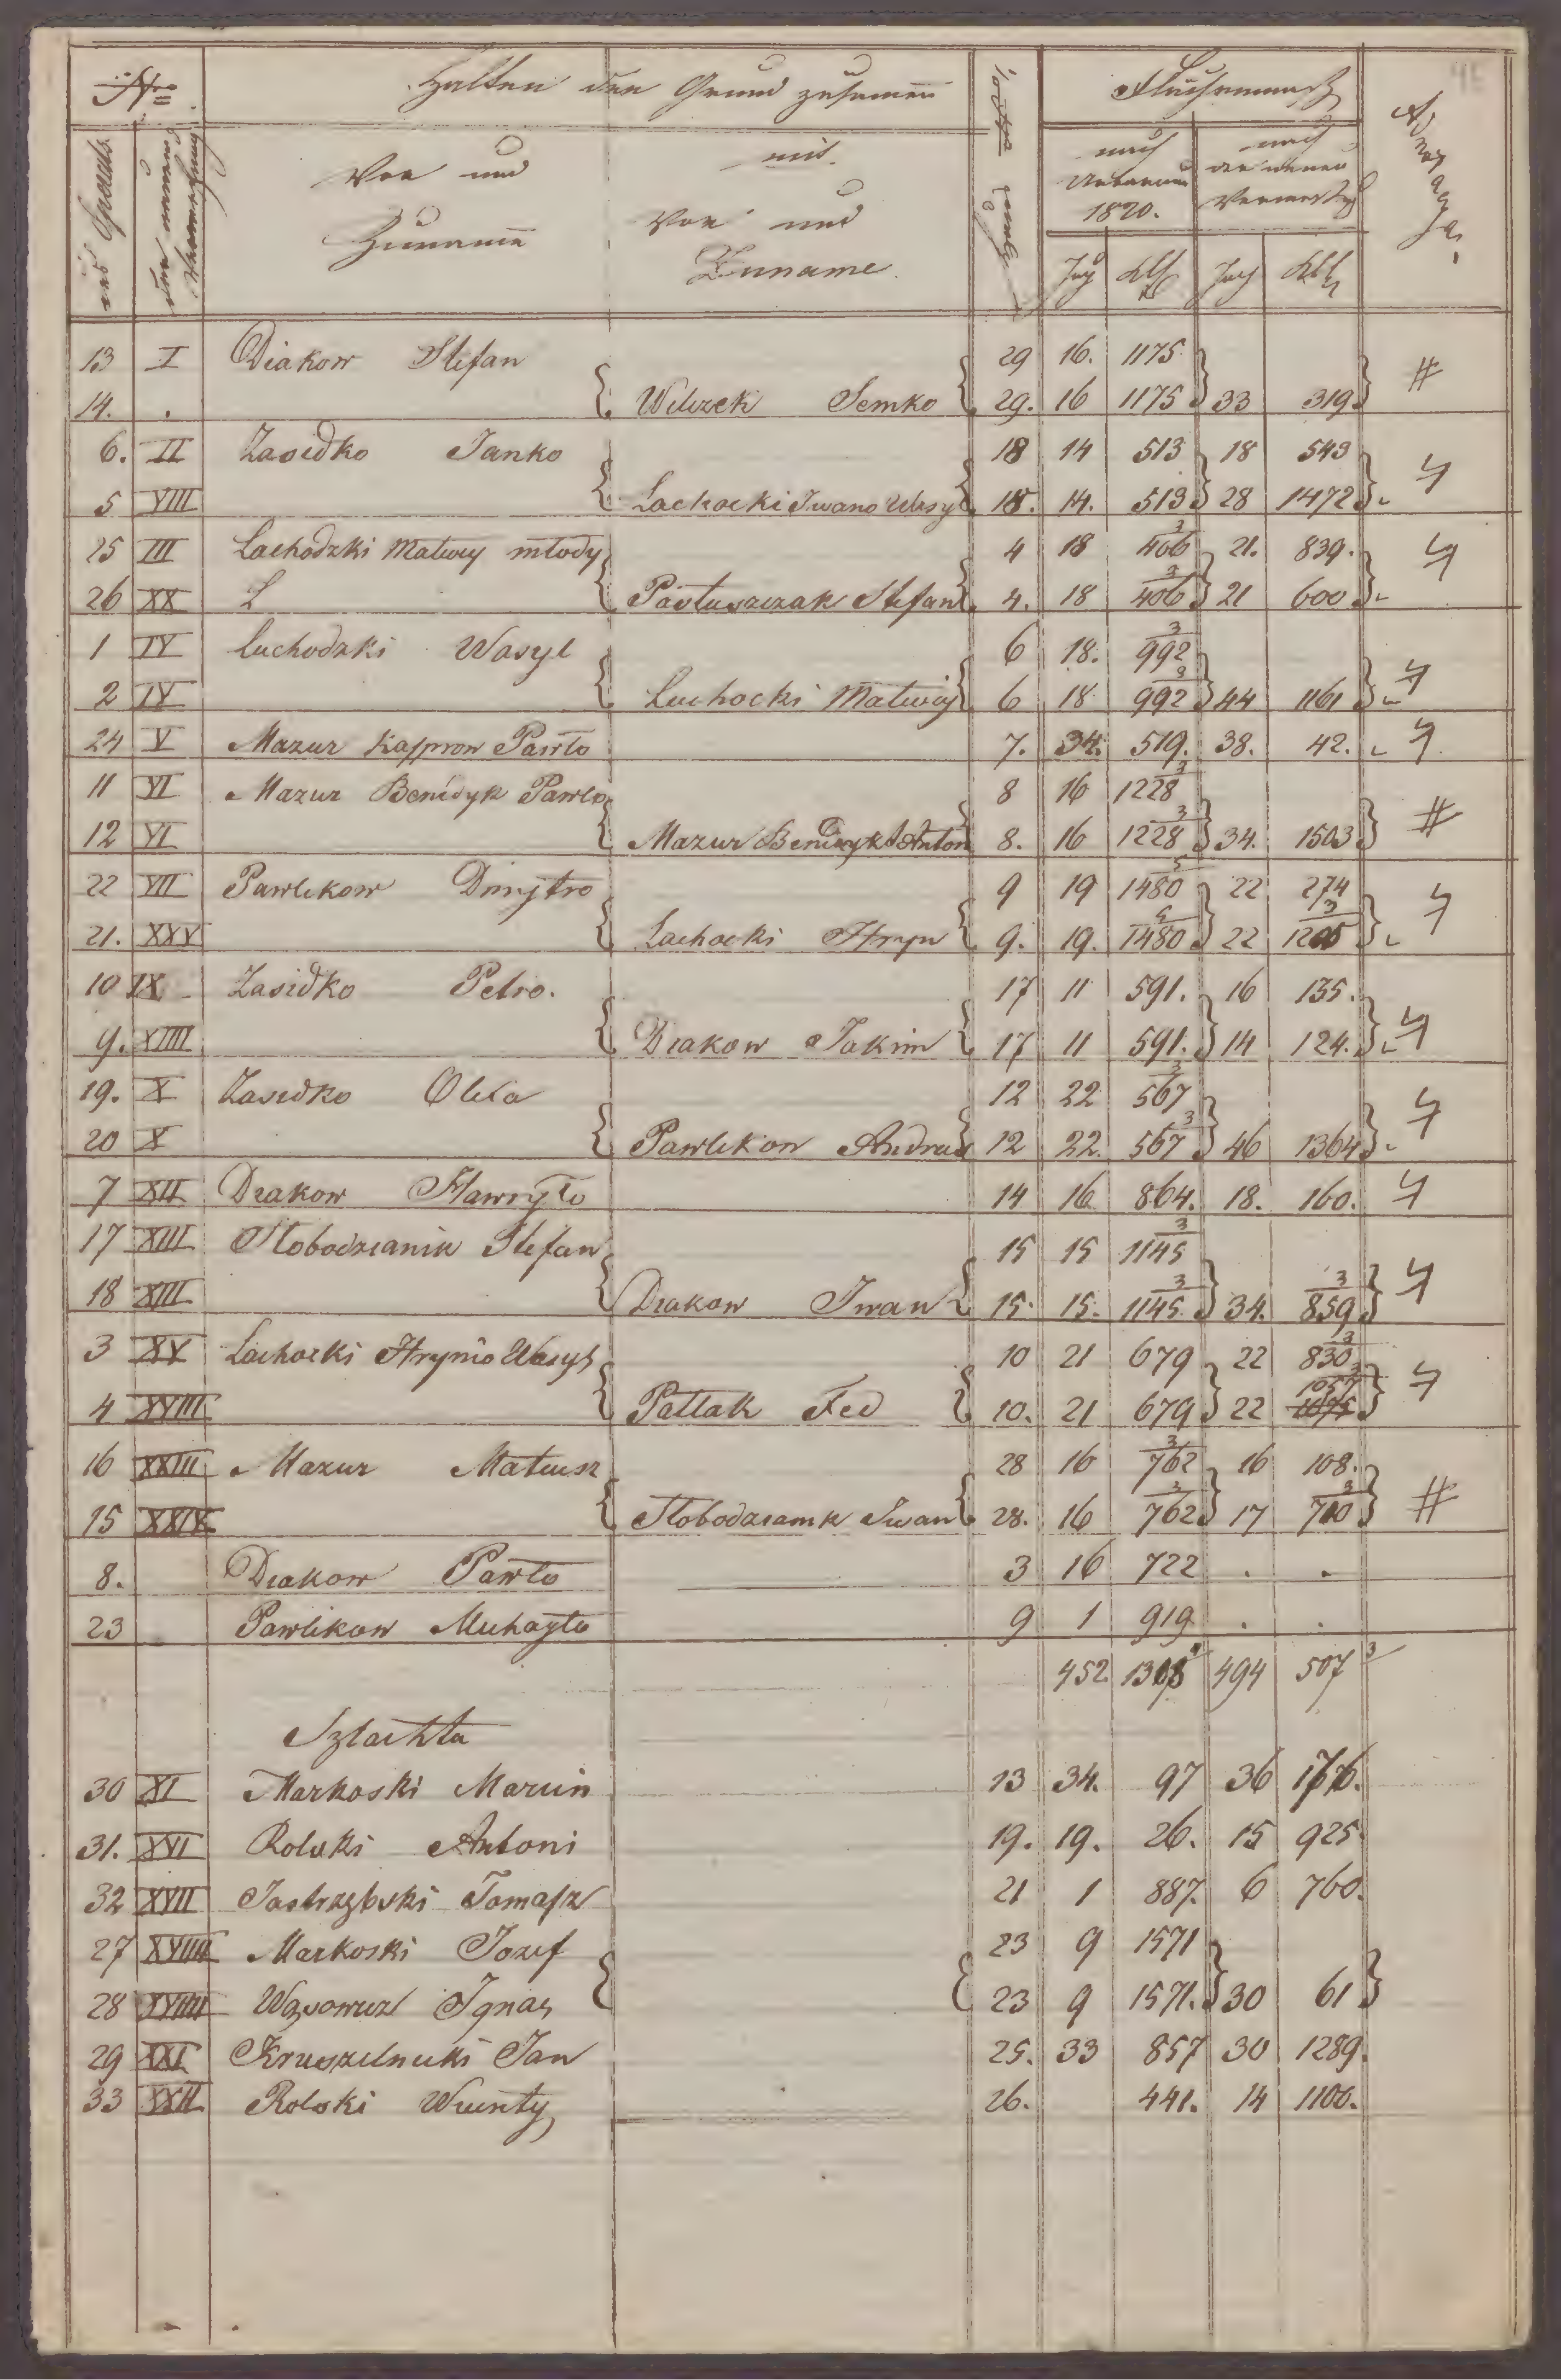 Nro
Halten den Grund zusamen
Flächenmaß
45
des Grunds
der neuen Vermessung
Vor und
Zuname
mit
Vor und
Zuname
nach
Urbarium
1820.
nach
der neuen
Vermessung
Joch Klf Joch Klf
13 I Diakow Stefan 29 16. 1175
14. . Wilczek Semko 29. 16 1175 33 319
6. II Zasidko Janko 18 14 513 18 543
5 VIII Lachocki Iwano Wasyl 18. 14. 513 28 1472
25 III Lachodzki Matwey młody 4 18 406 3 21. 839.
26 XX L Pastuszczak Stefan 4. 18 406 3 21 600
1 IV Luchodzki Wasyl 6 18. 992 3
2 IV Luchocki Matwiy 6 18 992 3 44 1161
24 V Mazur Kasprow Pawło 7. 34. 519. 38. 42.
11 VI Mazur Benedyk Pawło 8 16 1228 3
12 VI Mazur Benedyk Anton 8. 16 1228 3 34. 1503
22 VII Pawlikow Dmytro 9 19 1480 5 22 274
21. XXV Lachocki Hryn 9. 19. 1480 5 22 1205 3
10 IX Zasidko Petro. 17 11 591. 16 135.
9. XIIII Diakow Jakim 17 11 591. 14 124.
19. X Zasidko Olexa 12 22 567 3
20 X Pawlikow Andrus 12 22. 567 3 46 1364
7 XII Diakow Hawryło 14 16 864. 18. 160.
17 XIII Słobodzianik Stefan 15 15 1145 3
18 XIII Diakow Iwan 15. 15. 1145 3 34. 859 3
3 XV Lachocki Hrynio Wasyl 10 21 679 22 830 3
4 XVIII Patlak Fed 10. 21 679 22 1057
16 XXIII Mazur Mateusz 28 16 762 3 16 108.
15 XXIV Słobodzianik Iwan 28. 16 762 3 17 700 3
8. Diakow Pawło 3 16 722 . .
23 Pawlikow Michayło 9 1 919 . .
452 1308 494 507 3
Szlachta
30 XI Markoski Marcin 13 34. 97 36 1576.
31. XVI Rolski Antoni 19. 19. 26. 15 925
32 XVII Jastrzębski Tomasz 21 1 887. 6 760.
27 XVIIII Markoski Jozef 23 9 1571
28 XVIIII Wąsowicz Ignacy 23 9 1571. 30 61
29 XXI Kruszelnicki Jan 25. 33 857 30 1289.
33 XXII Rolski Wincenty 26. 441. 14 1100.